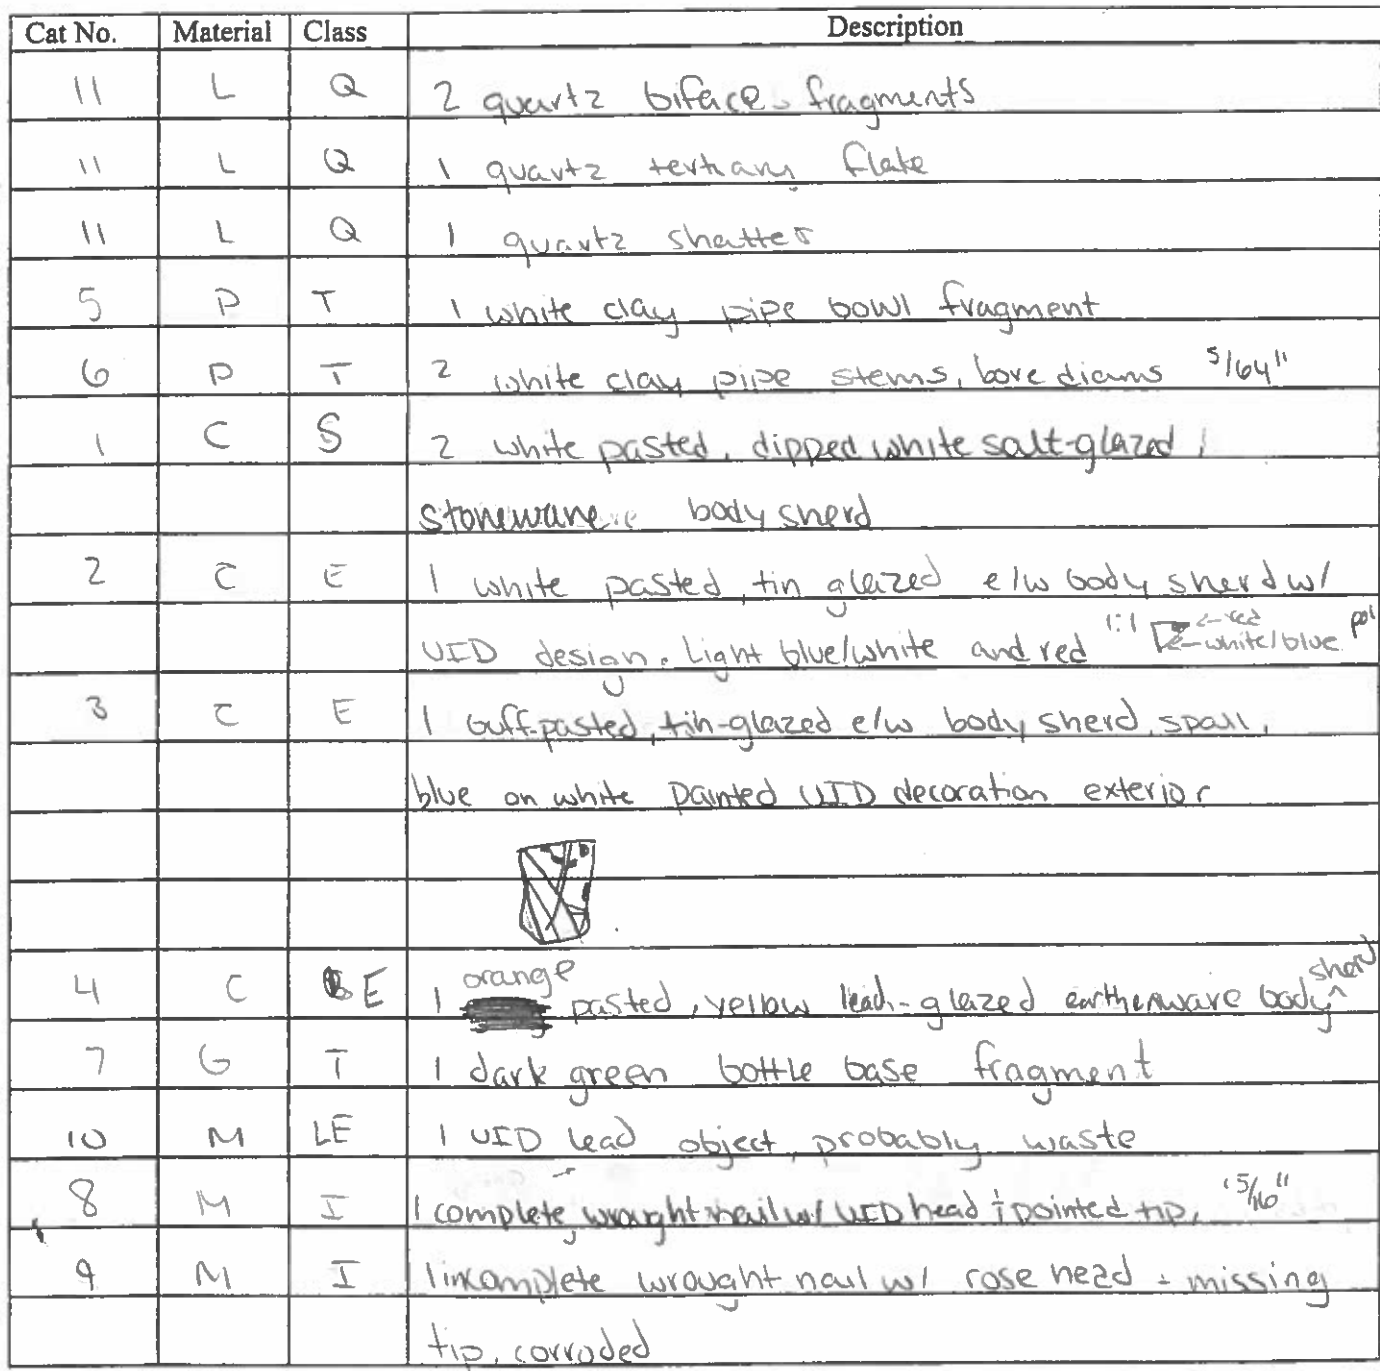 Cat No. Material Class Description
11 L Q 2 quartz biface fragments
11 L Q 1 quartz tertiary flake
11 L Q 1 quartz shatter
5 P T 1 white clay pipe bowl fragment
6 P T 2 white clay pipe stems, bore diams 5/64"
1 C S 2 white pasted, dipped white salt-glazed
stoneware body sherd
2 C E 1 white pasted, tin glazed e/w body sherd w/
UID design. Light blue/white and red 1:1 ←red ←white/blue pol
3 C E 1 buff-pasted, tin-glazed e/w body sherd, spall,
blue on white painted UID decoration exterior
4 C E 1 orange pasted, yellow lead-glazed earthenware body sherd
7 G T 1 dark green bottle base fragment
10 M LE 1 UID lead object, probably waste
8 M I 1 complete wrought nail w/ UID head + pointed tip, 15/16"
9 M I 1 incomplete wrought nail w/ rose head + missing
tip, corroded